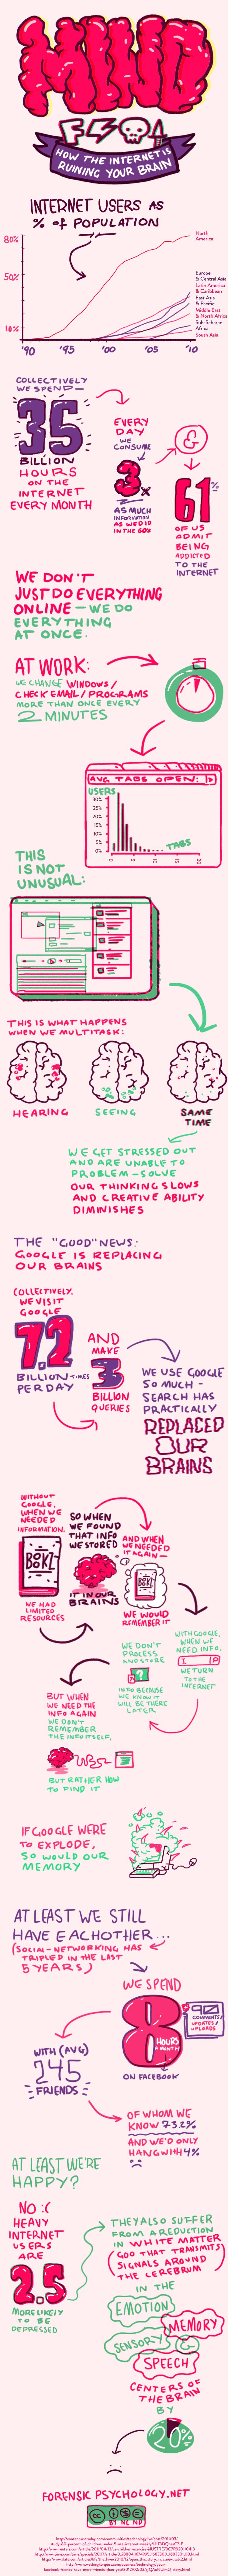 MIND
HOW THE INTERNET IS
RUINING YOUR BRAIN
INTERNET USERS AS
% of POPULATION
80%
50%
10%
'90
'95
'00
'05
'10
North
America
Europe
& Central Asia
Latin America
& Caribbean
East Asia
& Pacific
Middle East
& North Africa
Sub-Saharan
Africa
South Asia
COLLECTIVELY
WE SPEND—
35
BILLION
HOURS
ON THE
INTERNET
EVERY MONTH
EVERY
DAY
WE
CONSUME
3x
AS MUCH
INFORMATION
AS WE DID
IN THE 60s
&
61%
OF US
ADMIT
BEING
ADDICTED
TO THE
INTERNET
WE DON'T
JUST DO EVERYTHING
ONLINE — WE DO
EVERYTHING
AT ONCE.
AT WORK:
WE CHANGE WINDOWS/
CHECK EMAIL/PROGRAMS
MORE THAN ONCE EVERY
2 MINUTES
AVG. TABS OPEN:
USERS
30%
25%
20%
15%
10%
5%
0%
0
5
10
15
20
TABS
THIS
IS NOT
UNUSUAL:
THIS IS WHAT HAPPENS
WHEN WE MULTITASK:
HEARING
SEEING
SAME
TIME
WE GET STRESSED OUT
AND ARE UNABLE TO
PROBLEM-SOLVE
OUR THINKING SLOWS
AND CREATIVE ABILITY
DIMINISHES
THE "GOOD" NEWS:
GOOGLE IS REPLACING
OUR BRAINS
COLLECTIVELY,
WE VISIT
GOOGLE
7.2
BILLION TIMES
PER DAY
AND
MAKE
3
BILLION
QUERIES
WE USE GOOGLE
SO MUCH –
SEARCH HAS
PRACTICALLY
REPLACED
OUR
BRAINS
WITHOUT
GOOGLE,
WHEN WE
NEEDED
INFORMATION,
WE HAD
LIMITED
RESOURCES
SO WHEN
WE FOUND
THAT INFO
WE STORED
IT IN OUR
BRAINS
AND WHEN
WE NEEDED
IT AGAIN—
WE WOULD
REMEMBER IT
WITH GOOGLE,
WHEN WE
NEED INFO,
WE TURN
TO THE
INTERNET
WE DON'T
PROCESS
AND STORE
INFO BECAUSE
WE KNOW IT
WILL BE THERE
LATER
BUT WHEN
WE NEED THE
INFO AGAIN
WE DON'T
REMEMBER
THE INFO ITSELF,
BUT RATHER HOW
TO FIND IT
IF GOOGLE WERE
TO EXPLODE,
SO WOULD OUR
MEMORY
AT LEAST WE STILL
HAVE EACHOTHER...
(SOCIAL-NETWORKING HAS
TRIPLED IN THE LAST
5 YEARS)
WE SPEND
8
HOURS
A MONTH
ON FACEBOOK
90
COMMENTS/
UPDATES/
UPLOADS
WITH (AVG)
245
FRIENDS
OF WHOM WE
KNOW 73.2%
AND WE'D ONLY
HANG WITH 4%
AT LEAST WE'RE
HAPPY?
NO :(
HEAVY
INTERNET
USERS
ARE
2.5
MORE LIKELY
TO BE
DEPRESSED
THEY ALSO SUFFER
FROM A REDUCTION
IN WHITE MATTER
(GOO THAT TRANSMITS
SIGNALS AROUND
THE CEREBRUM)
IN THE
EMOTION
MEMORY
SENSORY
SPEECH
CENTERS OF
THE BRAIN
BY
20%
FORENSIC PSYCHOLOGY.NET